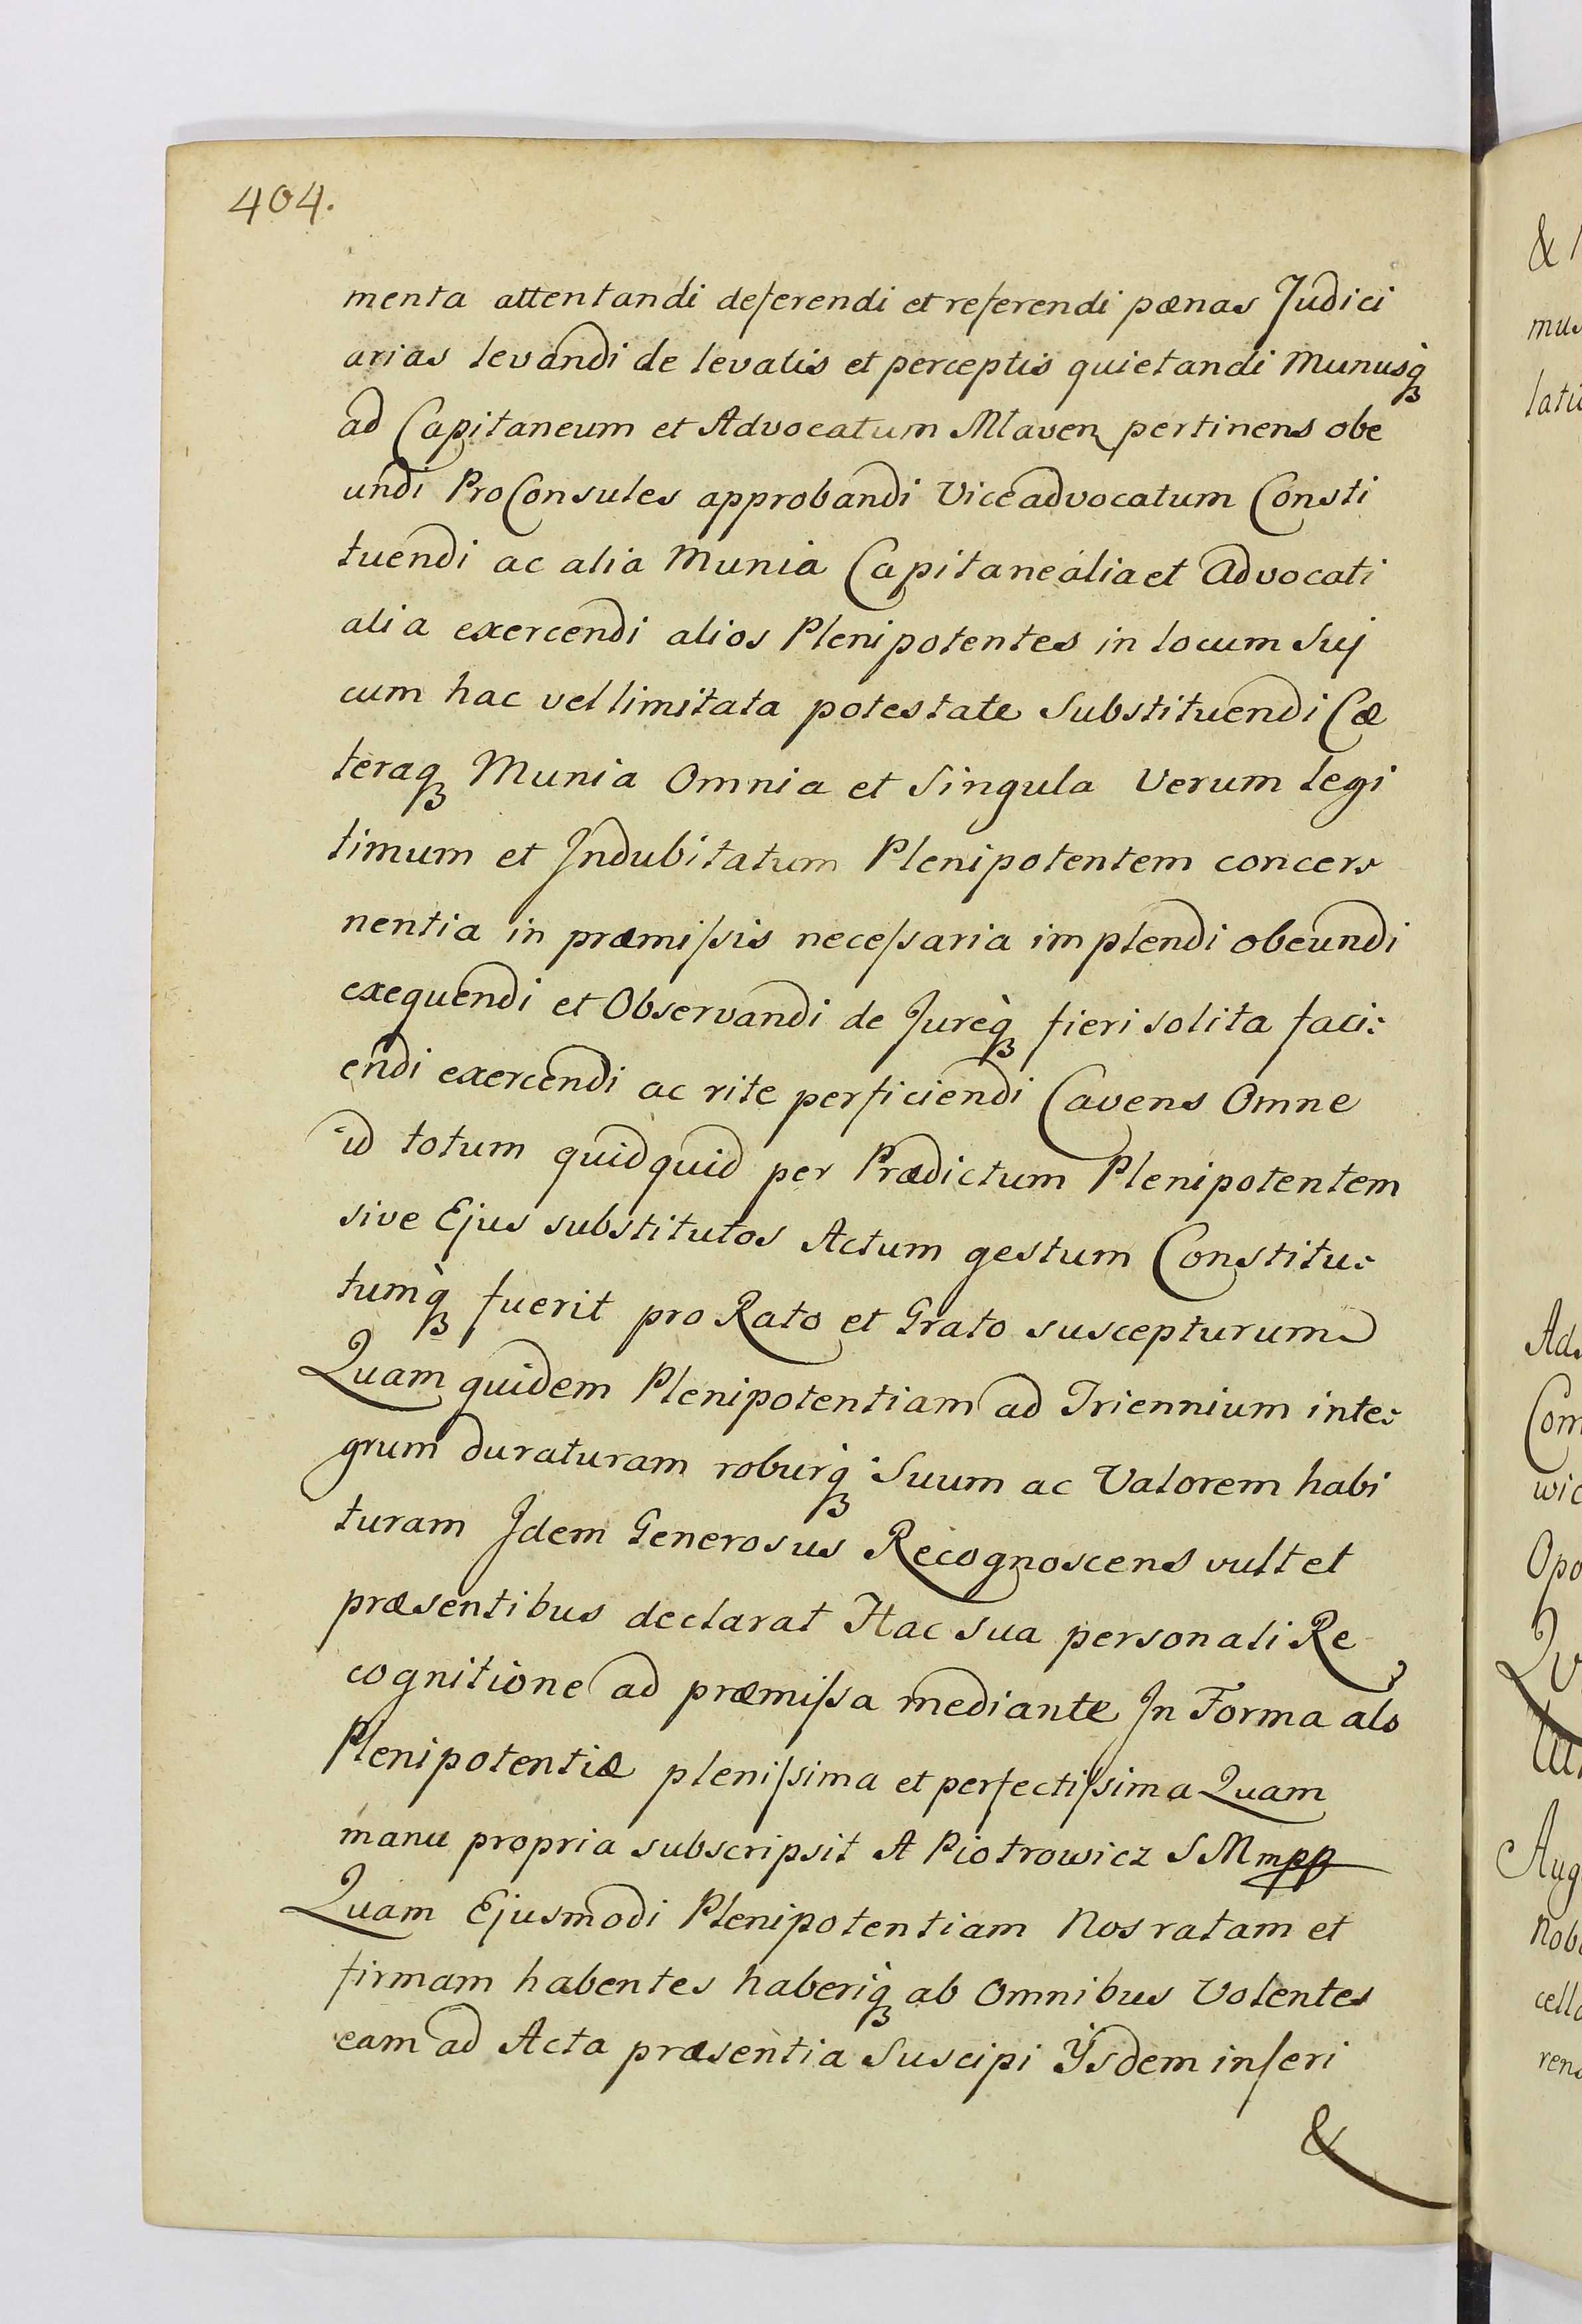 404.
menta attentandi deferendi et referendi pænas Judici
arias levandi de levatis et perceptis quietandi Munusq́ꝫ
ad Capitaneum et Advocatum Mlaven pertinens obe
undi ProConsules approbandi Viceadvocatum Consti
tuendi ac alia Munia Capitanealia et Advocati
alia exercendi alios Plenipotentes in locum Sui
cum hac vel limitata potestate Substituendi Cæ
teraqꝫ Munia Omnia et Singula Verum legi
timum et Indubitatum Plenipotentem concer-
nentia in præmissis necessaria implendi obeundi
exequendi et Observandi de Jureq̀ꝫ fieri solita faci-
endi exercendi ac rite perficiendi Cavens Omne
id totum quidquid per Prædictum Plenipotentem
sive Ejus substitutos Actum gestum Constitu-
tumq̀ꝫ fuerit pro Rato et Grato suscepturum
Quam quidem Plenipotentiam ad Triennium inte-
grum duraturam roburq̀ꝫ Suum ac Valorem habi
turam Idem Generosus Recognoscens vult et
præsentibus declarat Hac sua personali Re
cognitione ad præmissa mediante In Forma als
Plenipotentiæ plenissima et perfectissima Quam
manu propria subscripsit A Piotrowicz S M mpp
Quam Ejusmodi Plenipotentiam Nos ratam et
firmam habentes haberiq̀ꝫ ab Omnibus Volentes
eam ad Acta præsentia Suscipi Ÿsdem inseri
&
&
mus
Com
wic
Opo
Aug
Nob
cell